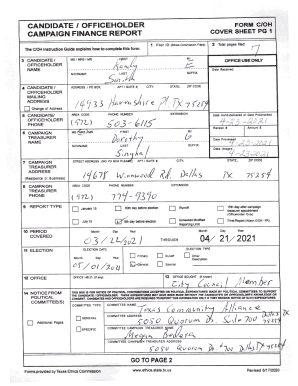 CANDIDATE / OFFICEHOLDER
CAMPAIGN FINANCE REPORT
FORM C/OH
COVER SHEET PG 1
The C/OH Instruction Guide explains how to complete this form.
1 Filer ID (Ethics Commission Filers)
2 Total pages filed:
7
3 CANDIDATE / OFFICEHOLDER NAME
MS / MRS / MR FIRST MI
Randy E
NICKNAME LAST SUFFIX
OFFICE USE ONLY
Date Received
4 CANDIDATE / OFFICEHOLDER MAILING ADDRESS
Change of Address
ADDRESS / PO BOX; APT / SUITE #; CITY; STATE; ZIP CODE
14933 Pl, TX 75254
5 CANDIDATE/ OFFICEHOLDER PHONE
AREA CODE PHONE NUMBER EXTENSION
(972) 503-6115
Date Hand-delivered or Date Postmarked
Receipt # Amount $
Date Processed
Date Imaged
6 CAMPAIGN TREASURER NAME
MS / MRS / MR FIRST MI
Dorothy
NICKNAME LAST SUFFIX
Singhal
7 CAMPAIGN TREASURER ADDRESS
(Residence or Business)
STREET ADDRESS (NO PO BOX PLEASE); APT / SUITE #; CITY; STATE; ZIP CODE
14678 Winnwood Rd, Dallas TX 75254
8 CAMPAIGN TREASURER PHONE
AREA CODE PHONE NUMBER EXTENSION
(972) 774-9390
9 REPORT TYPE
January 15
30th day before election
Runoff
15th day after campaign treasurer appointment (Officeholder Only)
July 15
8th day before election
Exceeded Modified Reporting Limit
Final Report (Attach C/OH - FR)
10 PERIOD COVERED
Month Day Year
03/22/2021 THROUGH 04/21/2021
11 ELECTION
ELECTION DATE
Month Day Year
05/01/2021
ELECTION TYPE
Primary
Runoff
Other Description
General
Special
12 OFFICE
OFFICE HELD (if any)
13 OFFICE SOUGHT (if known)
City Council Member
14 NOTICE FROM POLITICAL COMMITTEE(S)
Additional Pages
COMMITTEE TYPE
GENERAL
SPECIFIC
COMMITTEE NAME
Texas Community Alliance
COMMITTEE ADDRESS
5050 Quorum Dr. Suite 700 Dallas TX
COMMITTEE CAMPAIGN TREASURER NAME
Megan
COMMITTEE CAMPAIGN TREASURER ADDRESS
5050 Quorum Dr #700 Dallas TX 75254
GO TO PAGE 2
Forms provided by Texas Ethics Commission
www.ethics.state.tx.us
Revised 8/17/2020